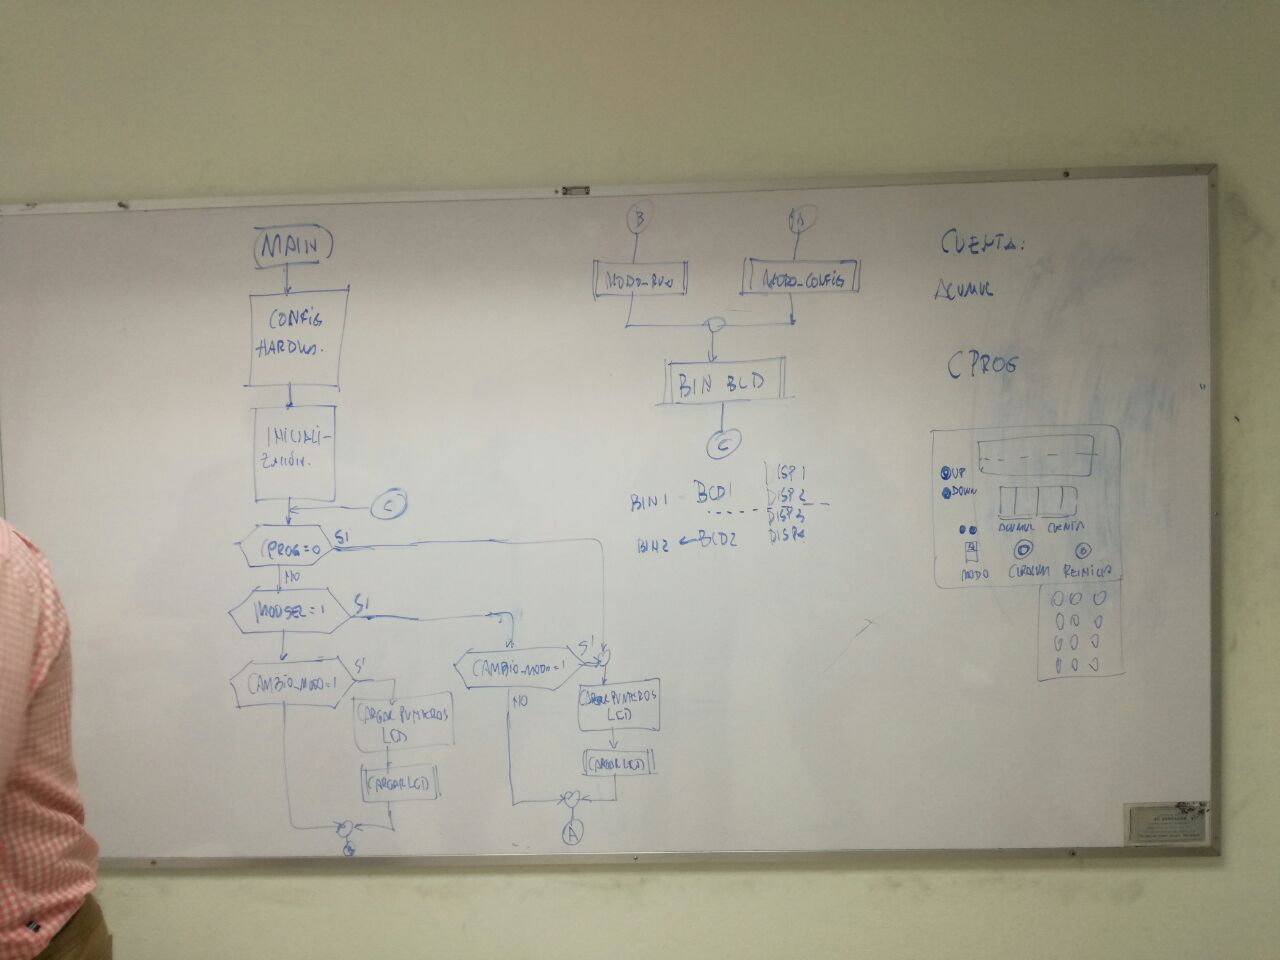 MAIN
CONFIG
HARDW.
INICIALI-
ZACIÓN.
C
CPROG=0
SI
NO
MODSEL=1
SI
CAMBIO_MODO=1
SI
CARGAR PUNTEROS
LCD
CARGAR LCD
B
CAMBIO_MODO=1
SI
NO
CARGAR PUNTEROS
LCD
CARGAR LCD
A
B
MODO_RUN
A
MODO_CONFIG
BIN BCD
C
BIN1
BCD1
DISP1
DISP2
DISP3
BIN2
BCD2
DISP4
CUENTA:
ACUMUL
CPROG
UP
DOWN
ACUMUL
CUENTA
MODO
REINICIO